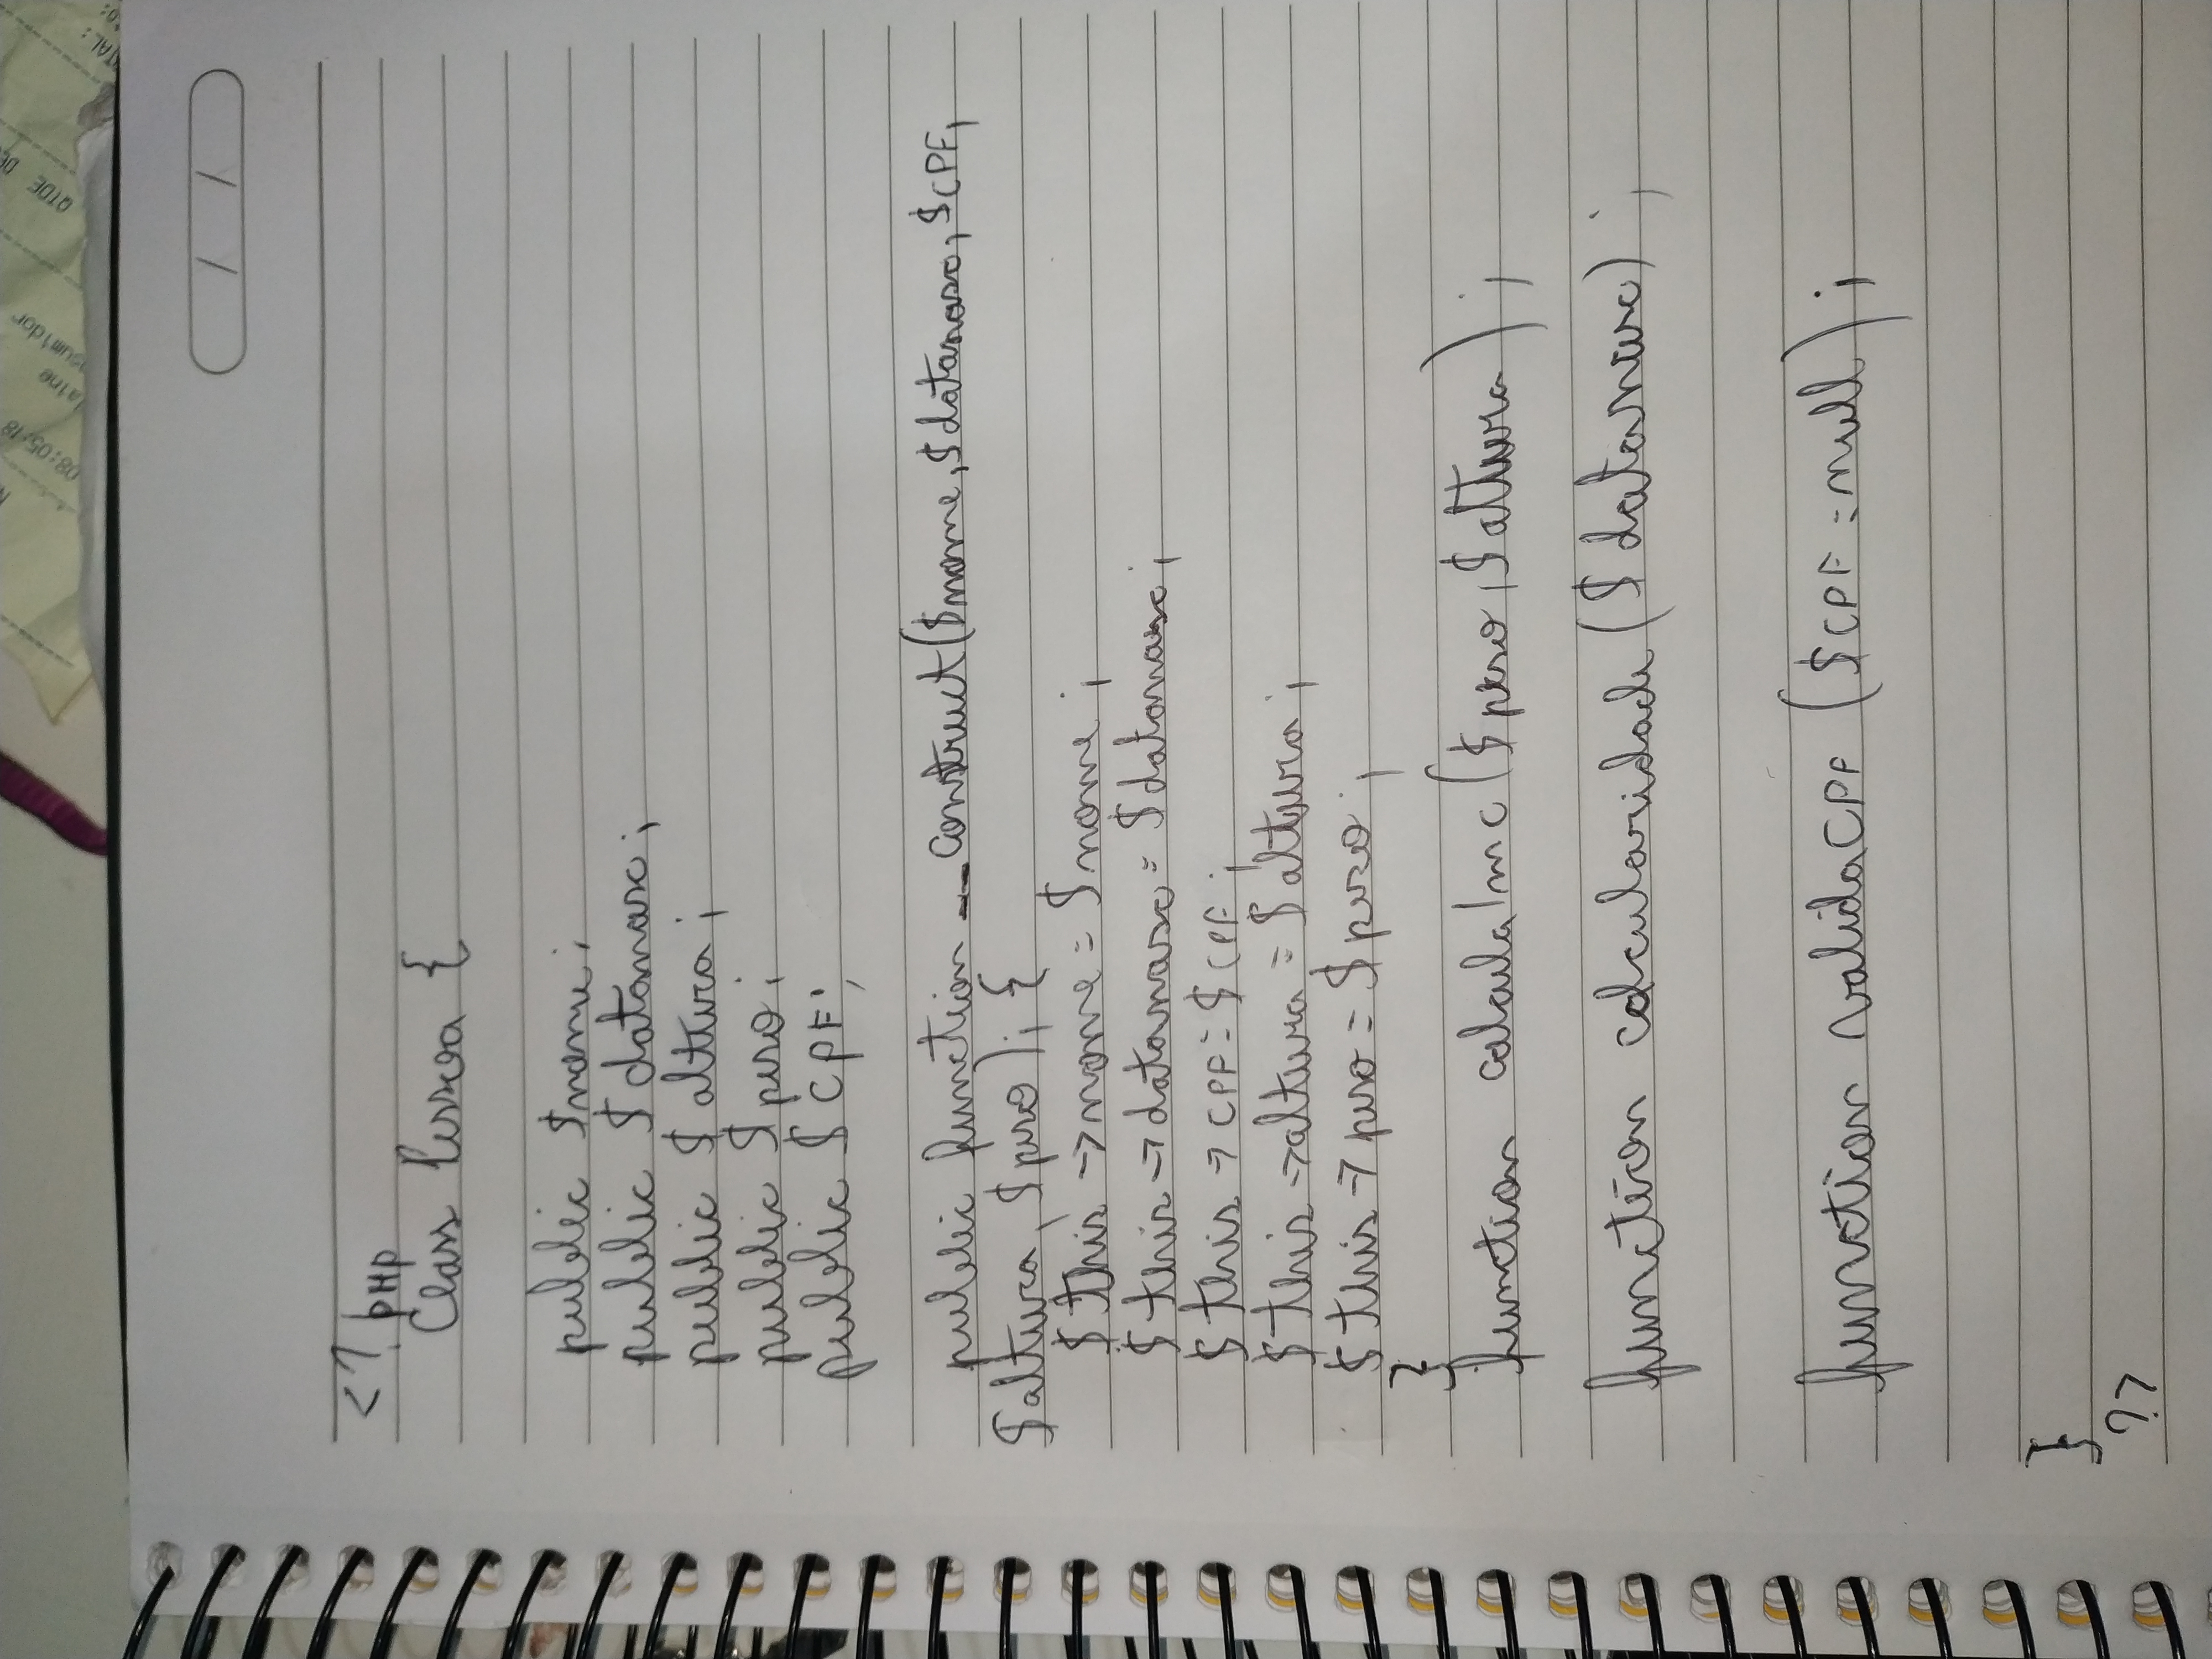 08:05:18
laine
nsumidor
QTDE DE
OTAL:
/ /
<?PHP
Class Pessoa {
public $nome;
public $datanasc;
public $altura;
public $peso;
public $CPF;
public function __construct($nome, $datanasc, $CPF,
$altura, $peso); {
$this ->nome = $nome;
$this ->datanasc = $datanasc;
$this -> CPF = $CPF;
$this ->altura = $altura;
$this -> peso = $peso;
}
function calculaImc ($peso, $altura);
function calcularidade ($datanasc);
function validaCPF ($CPF = null);
}
?>